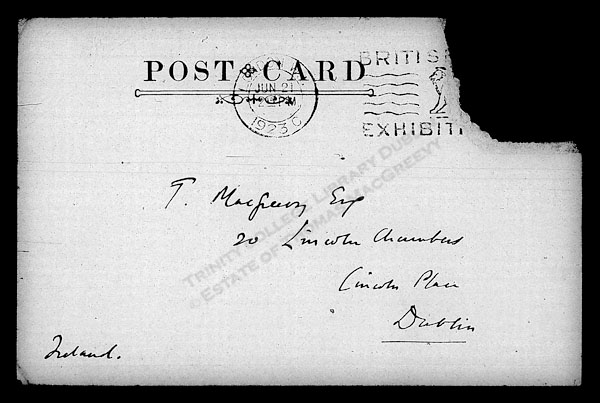 POST CARD
JUN 21
1923
BRITIS
EXHIBIT
T. MacGreevy Esq
20 Lincoln Chambers
Lincoln Place
Dublin
Ireland.
TRINITY COLLEGE LIBRARY DUBLIN
© ESTATE OF THOMAS MACGREEVY